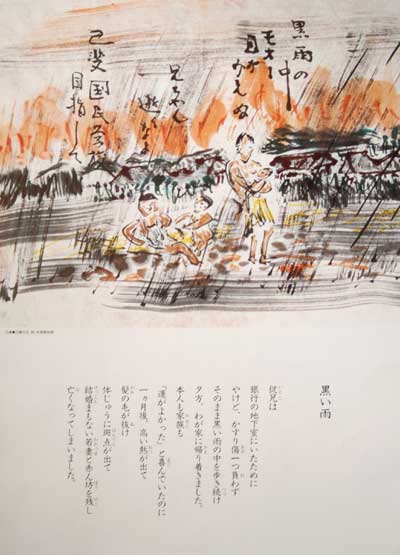 黒雨の
中
目がみえぬ
兄ちゃん
己斐国民学校
目指して
黒い雨
従兄は
銀行の地下室にいたために
やけど、かすり傷一つ負わず
そのまま黒い雨の中を歩き続け
夕方、わが家に帰り着きました。
本人も家族も
「運がよかった」と喜んでいたのに
一ヵ月後、高い熱が出て
髪の毛が抜け
体じゅうに斑点が出て
結婚まもない若妻と赤ん坊を残し
亡くなってしまいました。